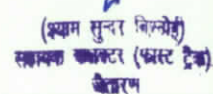 (श्याम सुन्दर बिश्नोई)
सहायक कलक्टर (फास्ट ट्रैक)
जैतारण